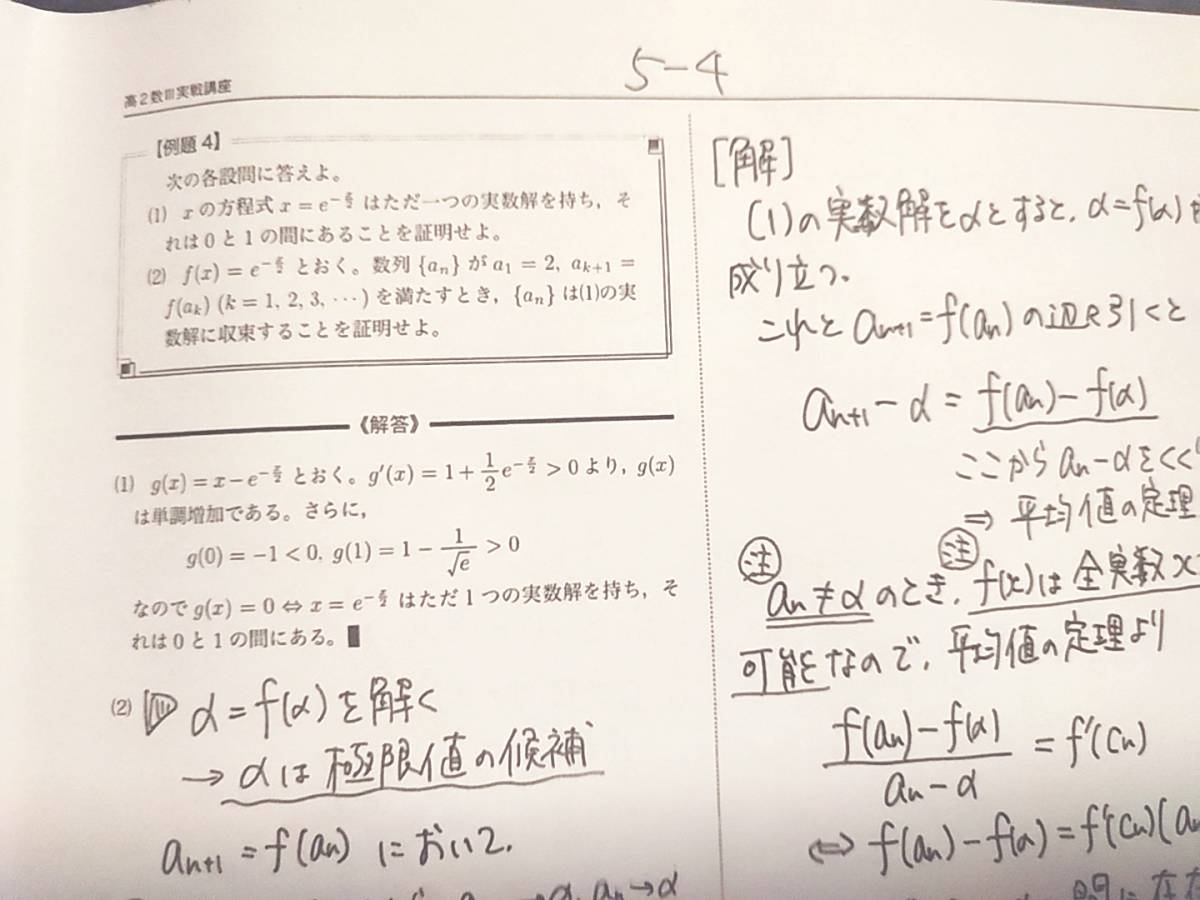 5-4
高2数Ⅲ実戦講座
【例題4】
次の各設問に答えよ。
(1) xの方程式 x = e^{-x/2} はただ一つの実数解を持ち，そ
れは0と1の間にあることを証明せよ。
(2) f(x) = e^{-x/2} とおく。数列 {a_n} が a_1 = 2, a_{k+1} =
f(a_k) (k = 1, 2, 3, …) を満たすとき，{a_n} は(1)の実
数解に収束することを証明せよ。
《解答》
(1) g(x) = x − e^{-x/2} とおく。g′(x) = 1 + 1/2 e^{-x/2} > 0 より，g(x)
は単調増加である。さらに，
g(0) = −1 < 0, g(1) = 1 − 1/√e > 0
なので g(x) = 0 ⇔ x = e^{-x/2} はただ1つの実数解を持ち，そ
れは0と1の間にある。
(2) α = f(α) を解く
→ αは極限値の候補
a_{n+1} = f(a_n) において,
[解]
(1)の実数解をαとすると, α = f(α)
成り立つ.
これと a_{n+1} = f(a_n) の辺々引くと
a_{n+1} − α = f(a_n) − f(α)
ここから a_n − α をくく
⇒ 平均値の定理
注 注
a_n ≠ α のとき, f(x)は全実数x
可能なので, 平均値の定理より
f(a_n) − f(α) / a_n − α = f′(c_n)
⇔ f(a_n) − f(α) = f′(c_n)(a_n